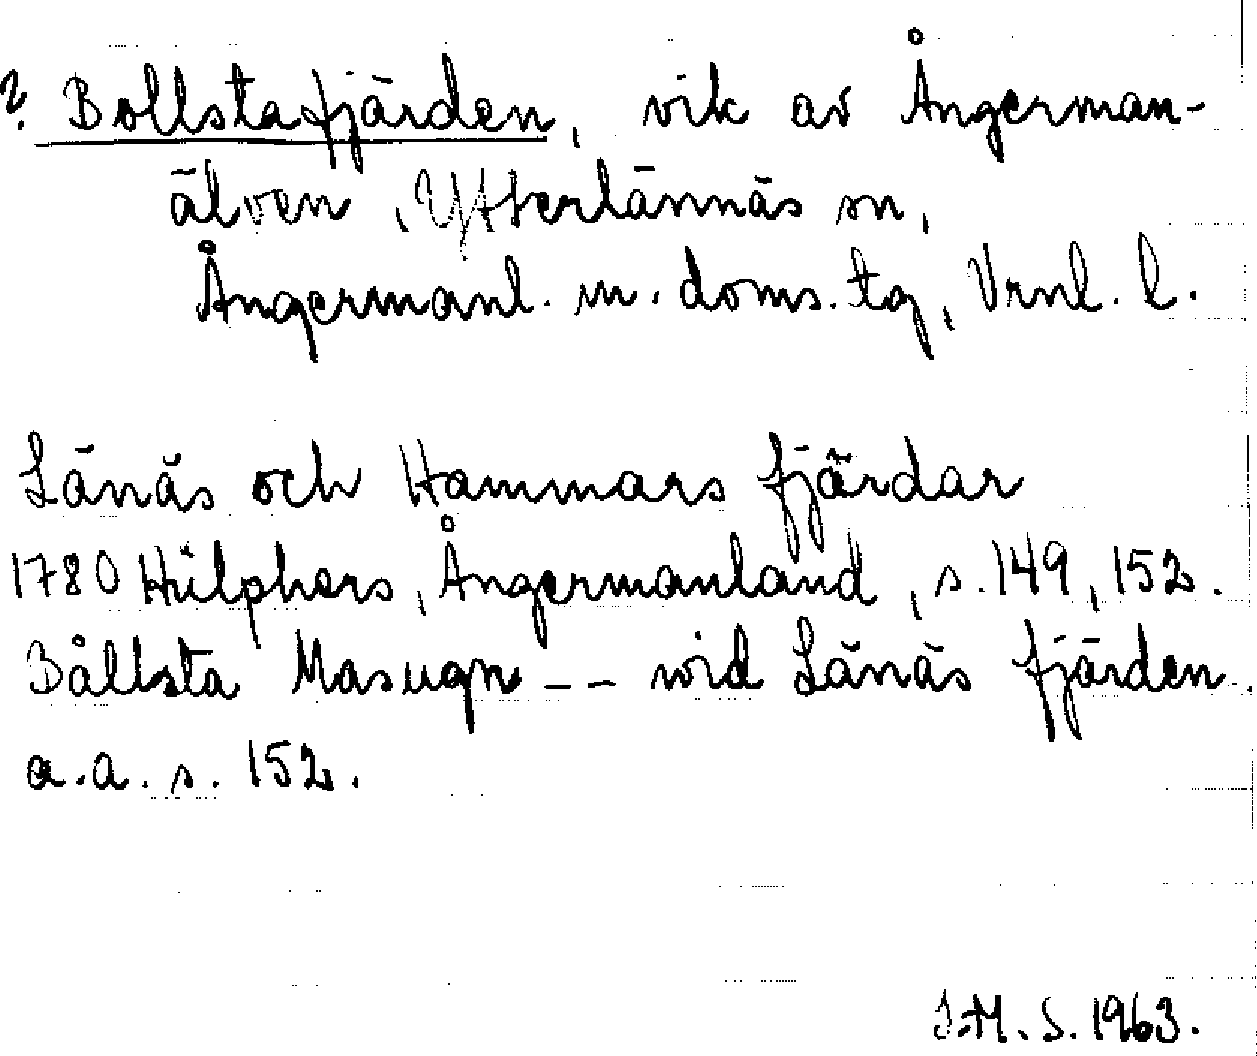 ? Bollstafjärden, vik av Ångerman-
älven, Ytterlännäs sn,
Ångermanl. m. doms. tg, Vrnl. l.
Länäs och Hammars fjärdar
1780 Hülphers, Ångermanland, s. 149, 152.
Bållsta Masugn -- wid Länäs fjärden
a.a. s. 152.
I.M.S. 1963.